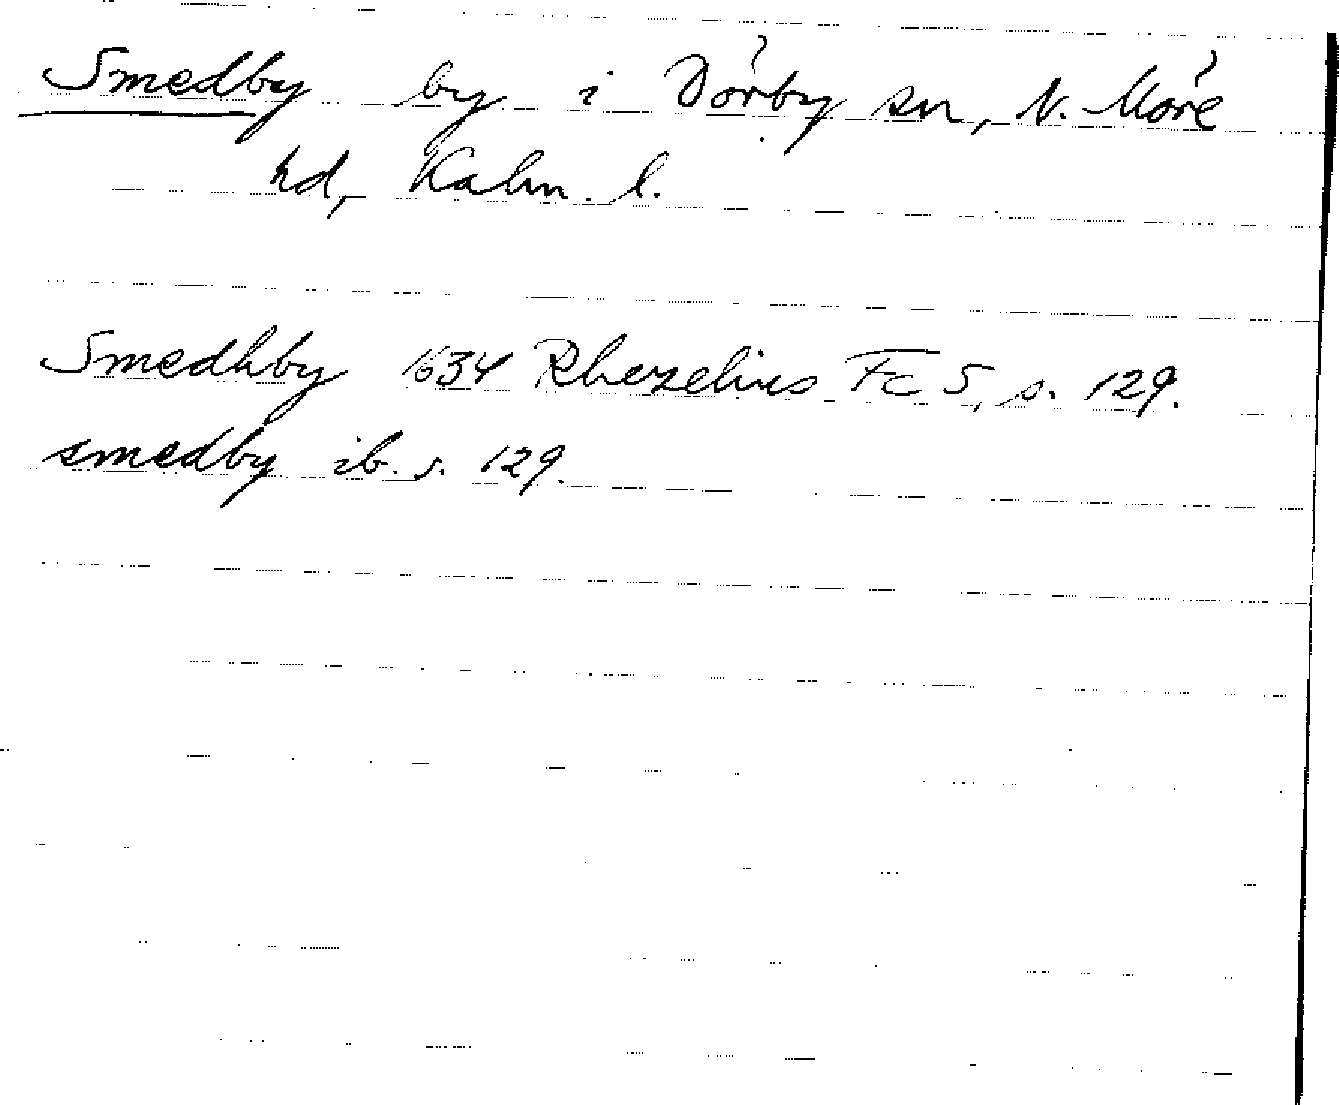 Smedby by i Dörby sn, N. Möre
hd, Kalm. l.
Smedhby 1634 Rhezelius Fc 5, s. 129.
smedby ib. s. 129.